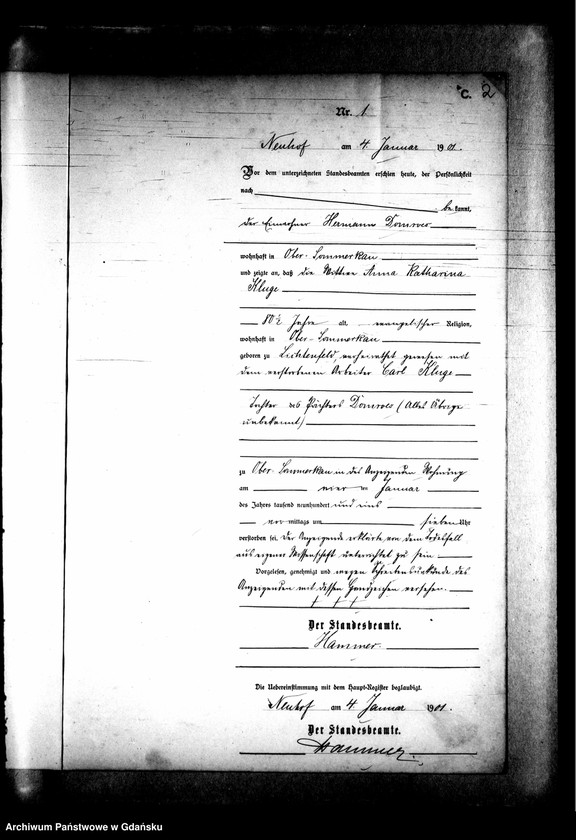 C. 2
Nr. 1
Neuhof am 4. Januar 1901.
Vor dem unterzeichneten Standesbeamten erschien heute, der Persönlichkeit
nach
bekannt,
der Einwohner Hermann Domroes
wohnhaft in Ober-Sommerkau
und zeigte an, daß die Wittwe Anna Katharina
Kluge
80½ Jahre alt, evangelischer Religion,
wohnhaft in Ober-Sommerkau
geboren zu Lichtenfeld, verheirathet gewesen mit
dem verstorbenen Arbeiter Carl Kluge
Tochter des Pächters Domroes (Alles Übrige
unbekannt)
zu Ober-Sommerkau in des Anzeigenden Wohnung
am vier ten Januar
des Jahres tausend neunhundert und eins
vor mittags um sieben Uhr
verstorben sei. Der Anzeigende erklärte von dem Todesfall
aus eigener Wissenschaft unterrichtet zu sein.
Vorgelesen, genehmigt und wegen Schreibensunkunde des
Anzeigenden mit dessen Handzeichen versehen.
† † †
Der Standesbeamte.
Hammer.
Die Uebereinstimmung mit dem Haupt-Register beglaubigt.
Neuhof am 4. Januar 1901.
Der Standesbeamte.
Hammer.
Archiwum Państwowe w Gdańsku